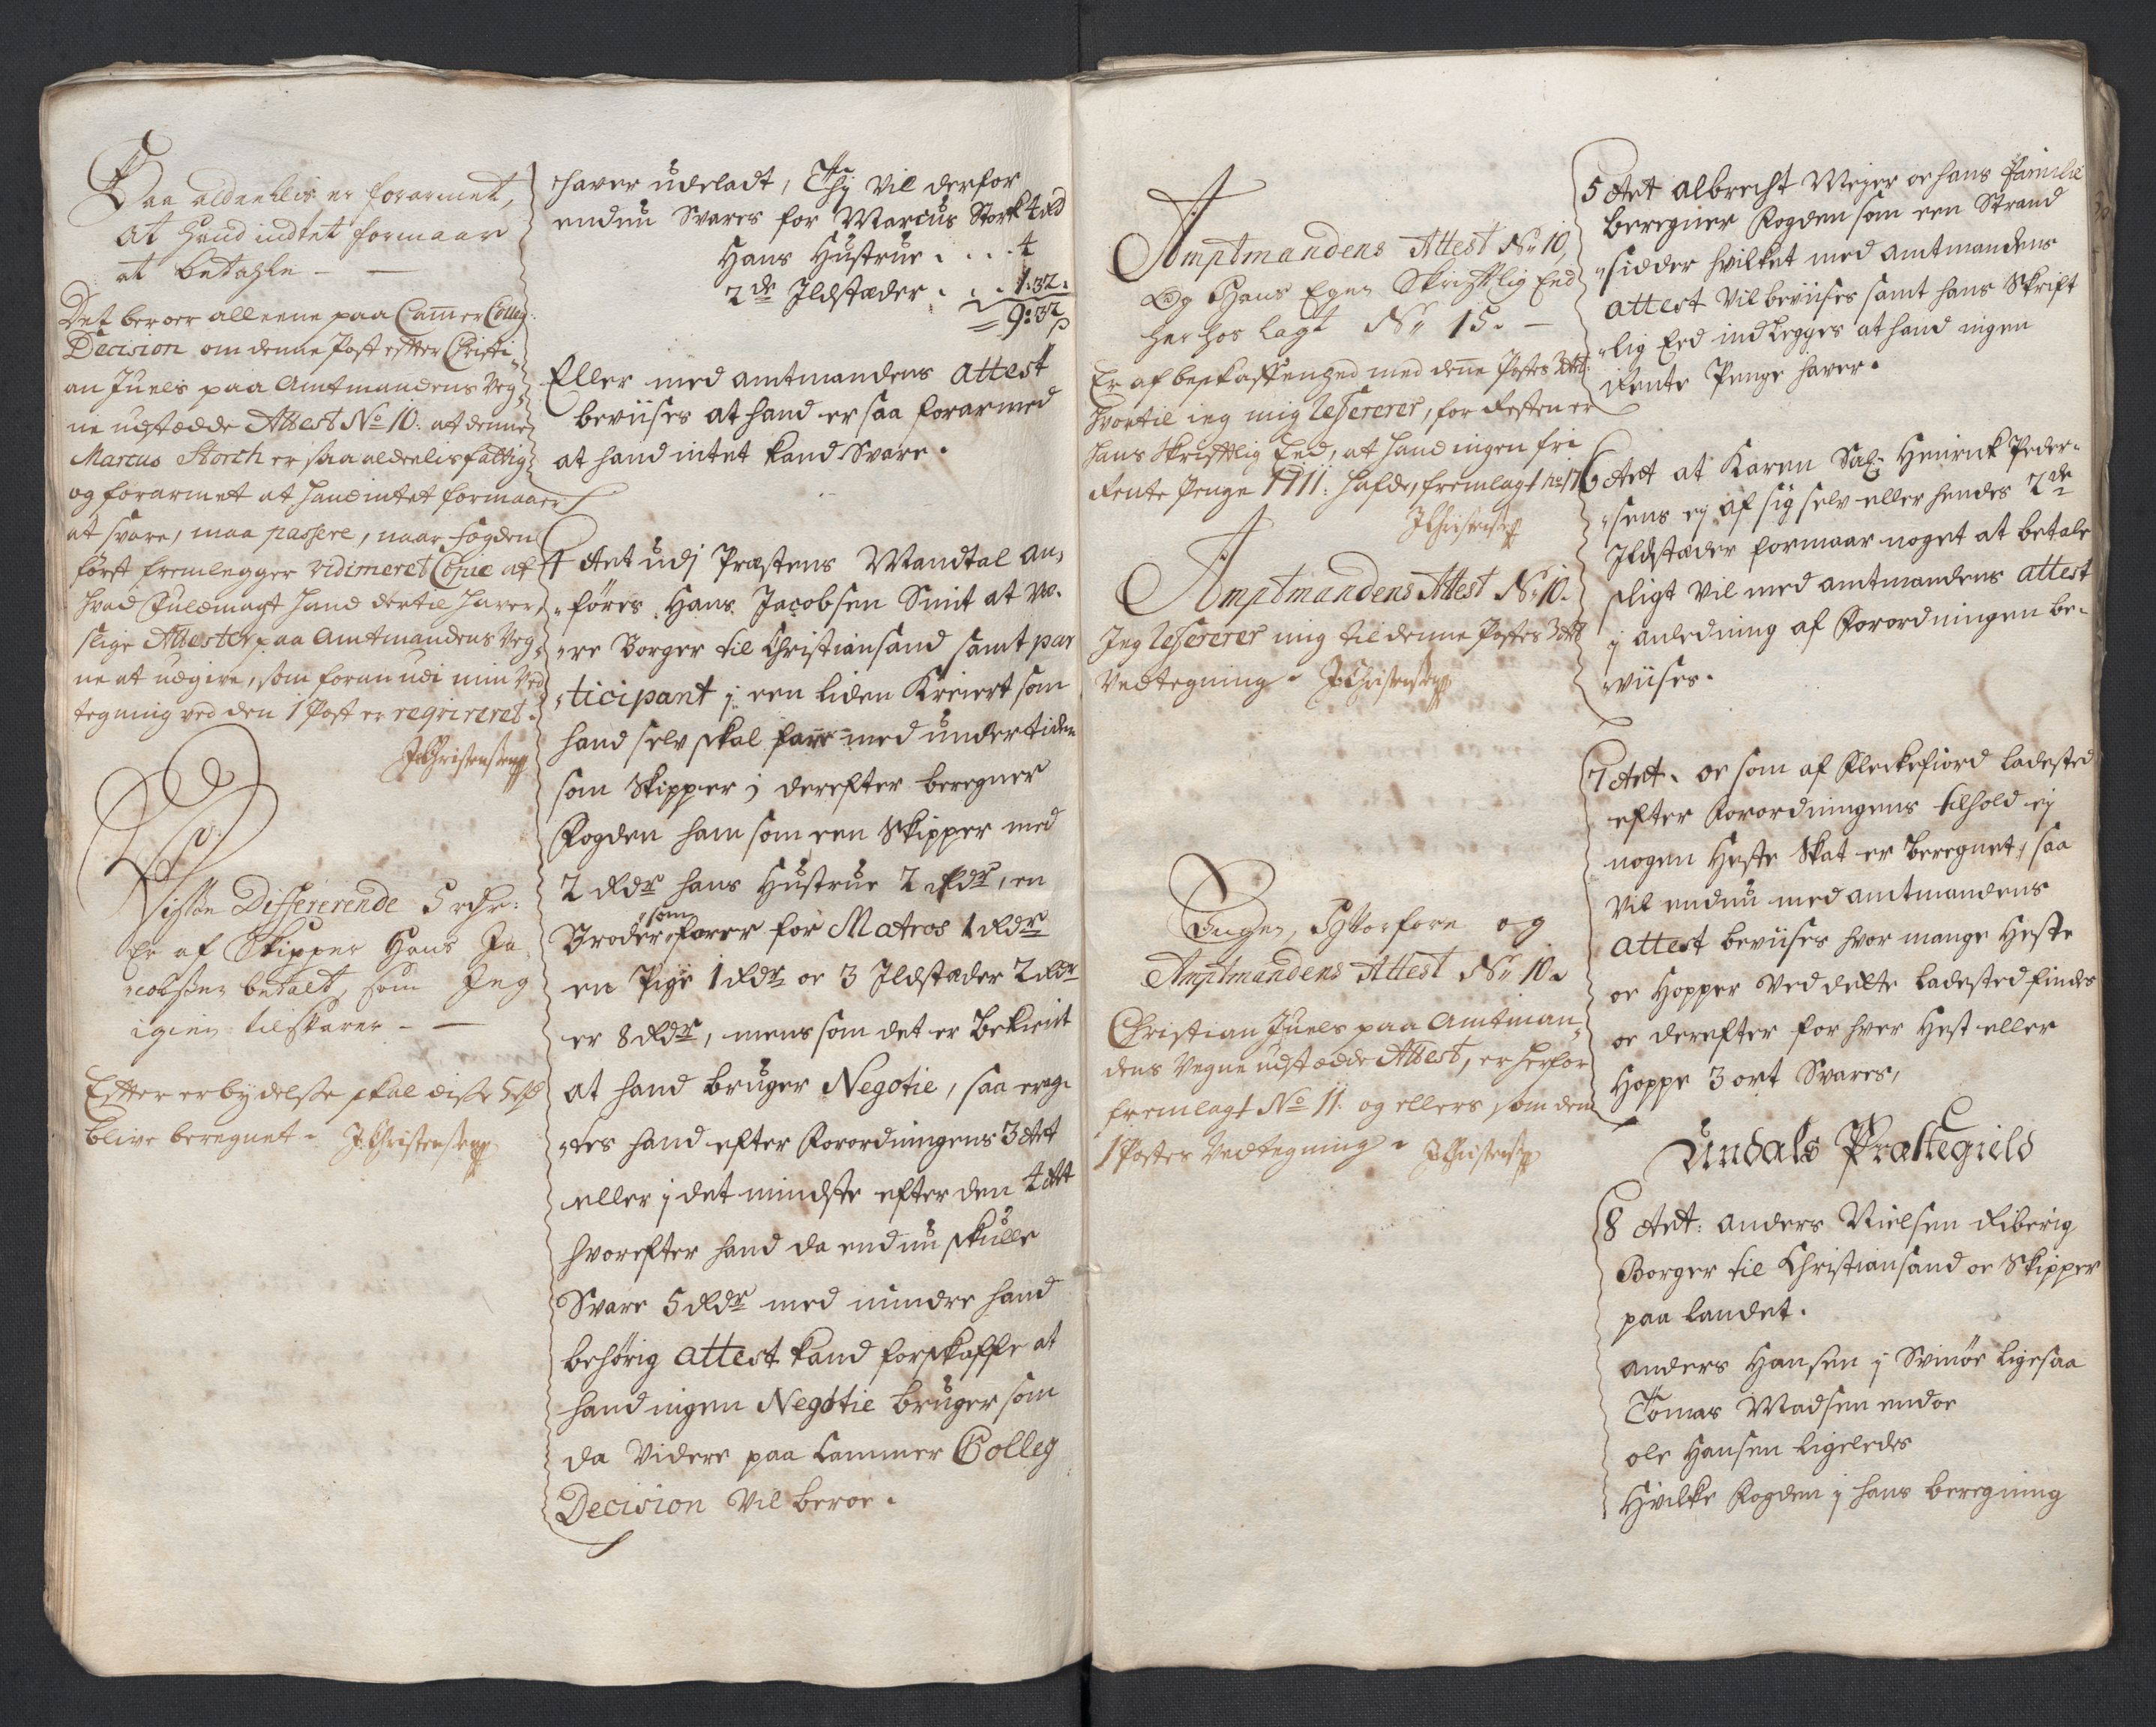 Saa aldeelis er forarmet,
at hand indtet formaar
at betahle —
Det beroer alleene paa Cammer Colleg:
Decision om denne Post efter Christi-
an Juels paa Amtmandens Veg-
ne udstædde Attest No 10. at denne
Marcus Storch er saa aldeelis fattig
og forarmet at hand intet formaaer
at svare, maa passere, naar fogden
först fremlegger vidimeret Copie af
hvad Fuldmagt hand dertil haver,
slige Attester paa Amtmandens Veg-
ne at udgive, som foran udi min Ved
tegning ved den 1 Post er reqvireret.
J. Christensen
Disse Differerende 5 rdr:
Er af Skipper Hans Ja-
cobsen betalt, som Jeg
igien tilsvarer —
Efter erbydelse skal disse 5 rdr
blive beregnet. J. Christensen
haver udeladt, Thj vil derfor
endnu Svares for Marcus Stork 4 rd
Hans Hustrue . . . 4
2de Ildstæder . . . 1:32.
= 9:32
Eller med amtmandens attest
beviises at hand er saa forarmed
at hand intet kand Svare.
4 Art udj Præstens Mandtal an-
föres Hans Jacobsen Smit at væ-
re Borger til Christiansand samt par
ticipant j een liden Kreiert som
hand selv skal fare med undertiden
som Skipper j derefter beregner
Fogden ham som een Skipper med
2 Rdr hans Hustrue 2 Rdr, en
Broder som farer for Matros 1 Rdr
en Pige 1 Rdr oc 3 Ildstæder 2 Rdr
er 8 Rdr, mens som det er bekient
at hand bruger Negotie, saa
hand efter Forordningens 3 Art
eller j det mindste efter den 4 Art
hvorefter hand da endnu skulle
Svare 5 Rdr med mindre hand
behörig attest kand forskaffe at
hand ingen Negotie bruger som
da Videre paa Cammer Colleg
Decision vil beroe.
Amptmandens Attest No 10,
Og Hans Egen Skriftlig Eed
her hos lagt No 15. —
Er af beskaffenhed med denne Postes 3 Art
hvortil ieg mig refererer, for Resten er
hans Skriftlig Eed, at hand ingen fri
Rente Penge 1711. hafde, fremlagt no 17
J. Christensen
Amptmandens Attest No 10.
Jeg refererer mig til denne Postes 3 Art
Vedtegning. J. Christensen
Ingen, Hvorfore og
Amptmandens Attest No 10.
Christian Juels paa Amtman-
dens Vegne udstædde Attest, er herfor
fremlagt No 11. og ellers som den
1 Postes Vedtegning. J. Christensen
5 Art albrecht Meyer oc hans Familie
beregner Fogden som een Strand
sidder hvilket med amtmandens
attest vil beviises samt hans Skrift
lig Eed indlegges at hand ingen
Rente Penge haver.
6 Art at Karen Sal: Henrick Peder-
sens ej af sig selv eller hendes 2de
Ildstæder formaar noget at betale
sligt vil med amtmandens attest
j anledning af Forordningen be-
viises.
7 Art. oc som af Fleckefiord ladested
efter Forordningens tilhold ej
nogen Heste Skat er beregnet, saa
vil endnu med amtmandens
attest beviises hvor mange Heste
oc Hopper Ved dette ladested findes
oc derefter for hver Hest eller
Hoppe 3 ort Svares,
Undals Præstegield
8 Art: anders Nielsen Riberig
Borger til Christiansand oc Skipper
paa landet.
anders Hansen j Svinöe ligesaa
Tomas Madsen endoc
ole Hansen ligeledes
Hvilke Fogden j hans beregning